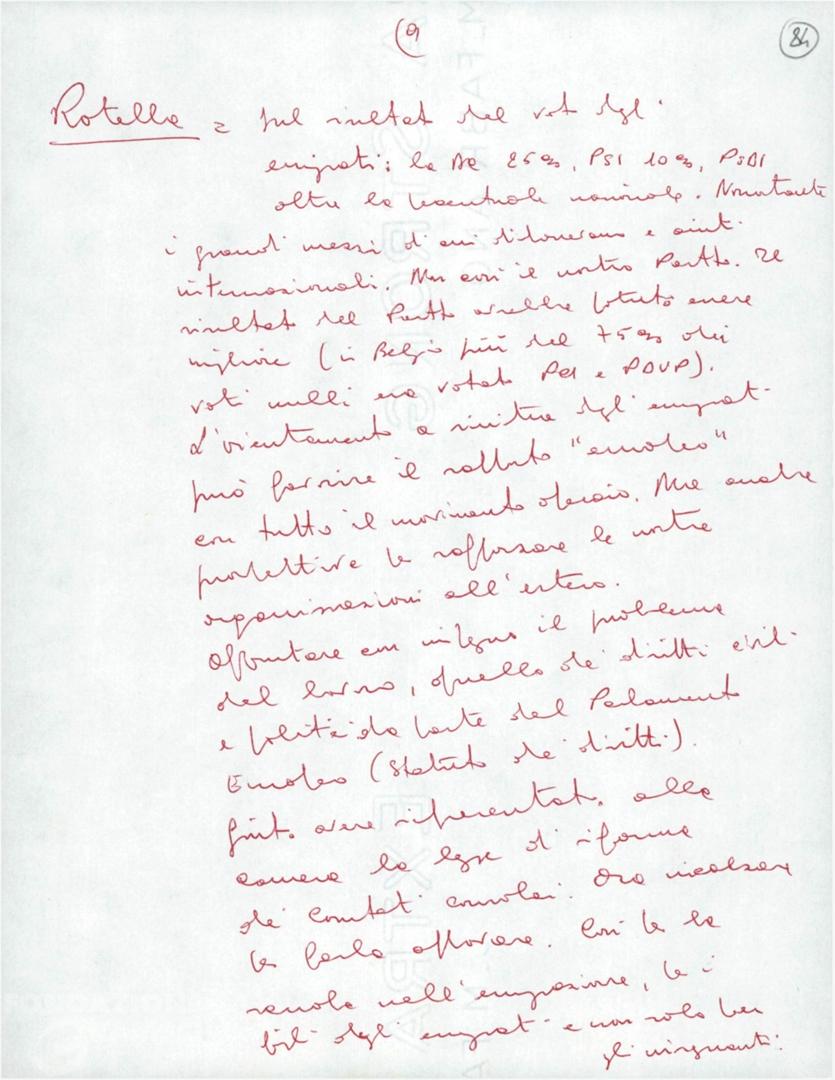 (9
84
Rotella = sul risultato del voto degli
emigrati: la DC 25%, PSI 10%, PSDI
oltre la percentuale nazionale. Nonostante
i grandi mezzi di cui dispongono e aiuti
internazionali. Ma così il nostro Partito. Il
risultato del Partito avrebbe potuto essere
migliore (in Belgio più del 75% dei
voti nulli era votato PCI e PDUP).
L'orientamento a sinistra degli emigrati
può favorire il rapporto "europeo"
con tutto il movimento operaio. Ma anche
prospettive per rafforzare le nostre
organizzazioni all'estero.
Affrontare con impegno il problema
del lavoro, quello dei diritti civili
e politici da parte del Parlamento
Europeo (Statuto dei diritti).
Giusto avere ripresentato alla
camera la legge di riforma
dei Comitati consolari. Ora incalzare
per farla approvare. Così per la
scuola nell'emigrazione, per i
figli degli emigrati e non solo per
gli insegnanti.